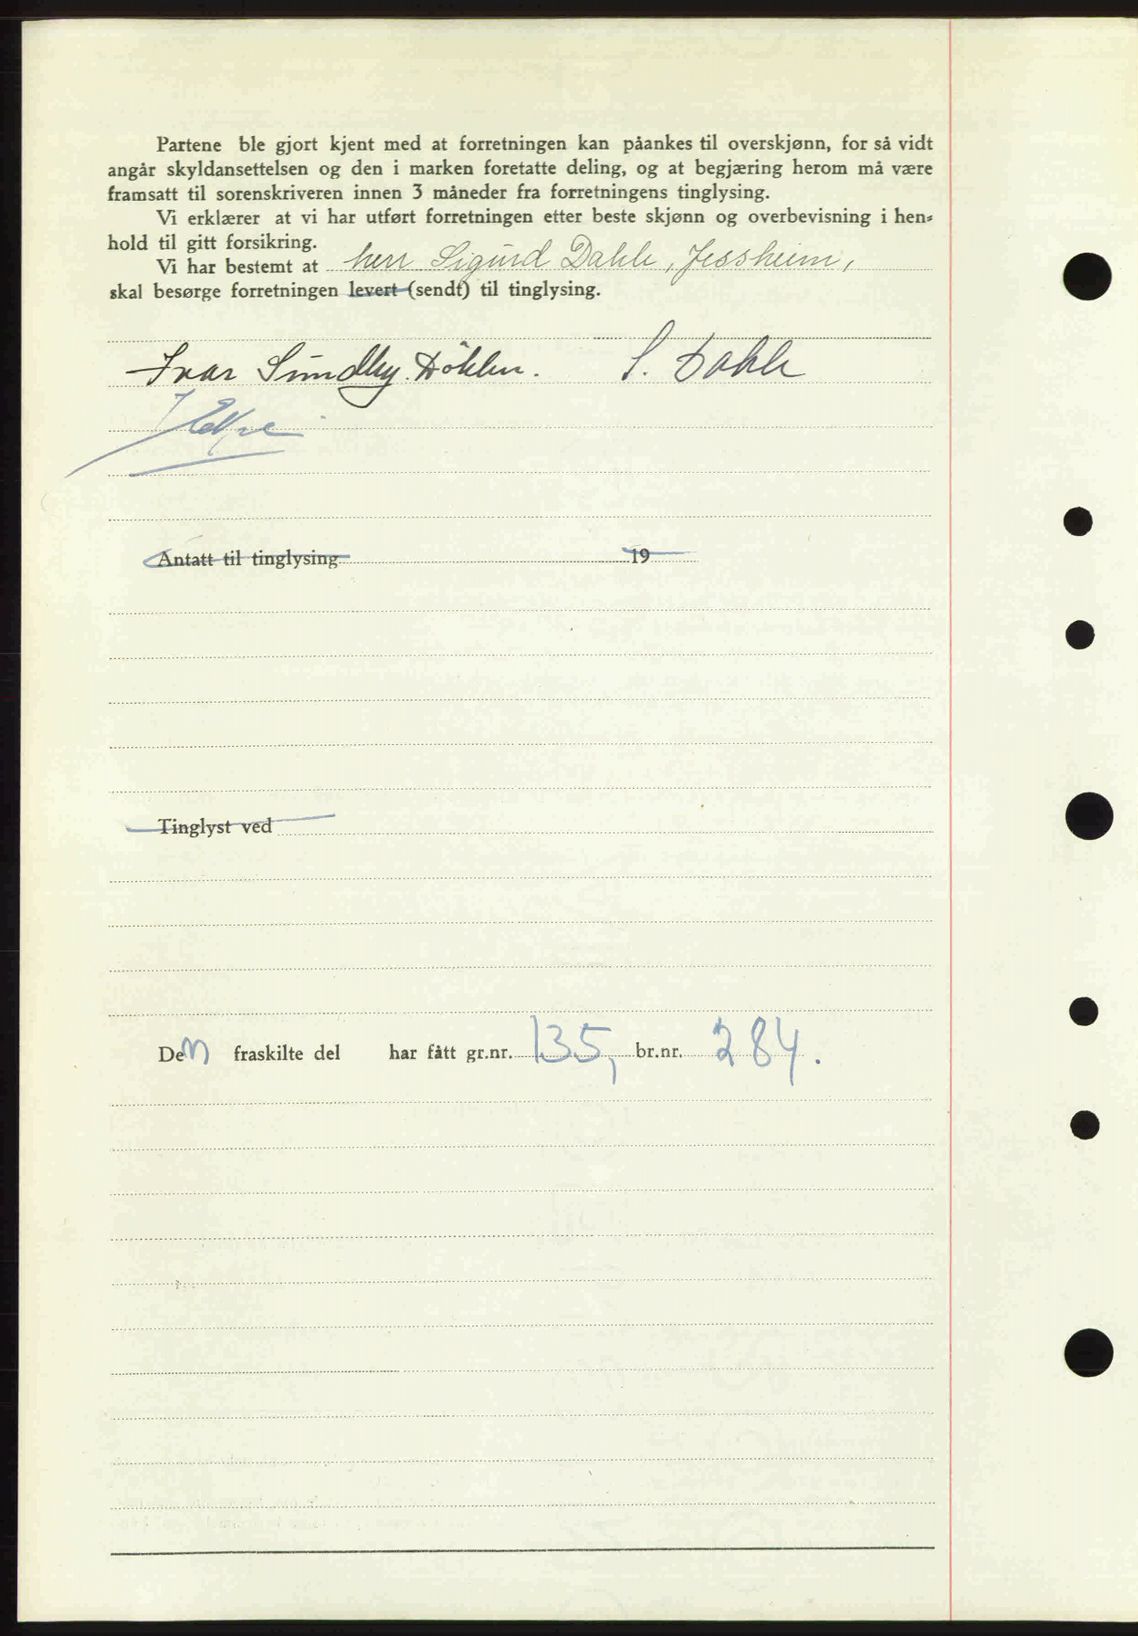 Partene ble gjort kjent med at forretningen kan påankes til overskjønn, for så vidt
angår skyldansettelsen og den i marken foretatte deling, og at begjæring herom må være
framsatt til sorenskriveren innen 3 måneder fra forretningens tinglysing.
Vi erklærer at vi har utført forretningen etter beste skjønn og overbevisning i hen-
hold til gitt forsikring.
Vi har bestemt at herr Sigurd Dahle, Jessheim,
skal besørge forretningen levert (sendt) til tinglysing.
Ivar Sundby. Døhlen. S. Dahle
Antatt til tinglysing 19
Tinglyst ved
Den fraskilte del har fått gr.nr. 135, br.nr. 284.